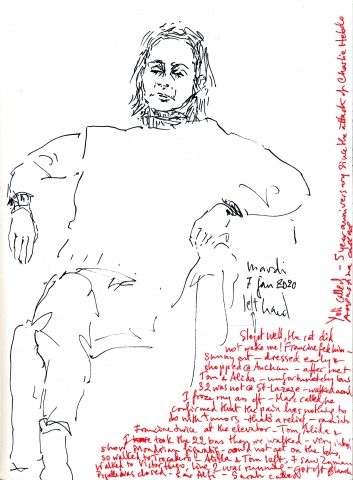 mardi
7 Jan 2020
left hand
Slept well, the cat did
not wake me! Francine fed him –
Sunny out – dressed early &
shopped @ Auchan – after met
Tom & Alida – unfortunately bus
32 was not @ St-Lazare – walked and
I froze my as off – Marc called, he
confirmed that the pain has nothing to
do w/ tumors – that's a relief –
Francine twice at the elevator – Tom, Alida &
I took the 22 bus then we walked – very
show Mondrian figuratif – could not get on the bus,
so walked to Trocadero – Alida & Tom left, I
walked to Victor Hugo, line 2 was running – got off @
Pigalle was closed – – Sarah called
Yuki called – 5 year anniversary since the attack of Charlie Hebdo
called